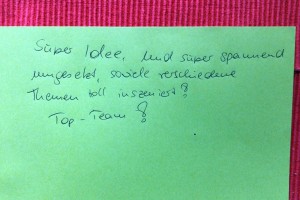 Super Idee, und super spannend
umgesetzt, soviele verschiedene
Themen toll inszeniert!
Top-Team!